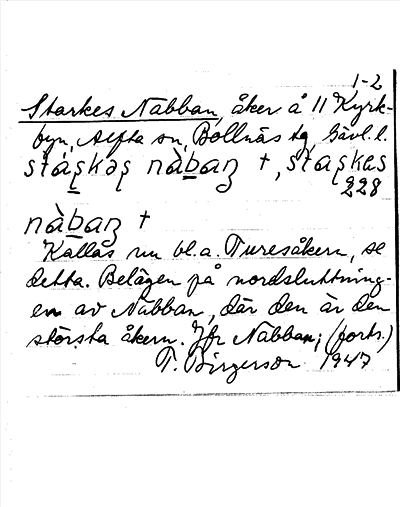 1-2
Starkes Nabban, åker å 11 Kyrk-
byn, Alfta sn, Bollnäs tg, Gävl. l.
stáşkəş nàbaŋ +, staşkas
228
nàbaŋ +
Kallås nu bl.a. Turesåkern, se
detta. Belägen på nordsluttning-
en av Nabban, där den är den
största åkern. Jfr Nabban; (forts.)
T. Birgerson 1947